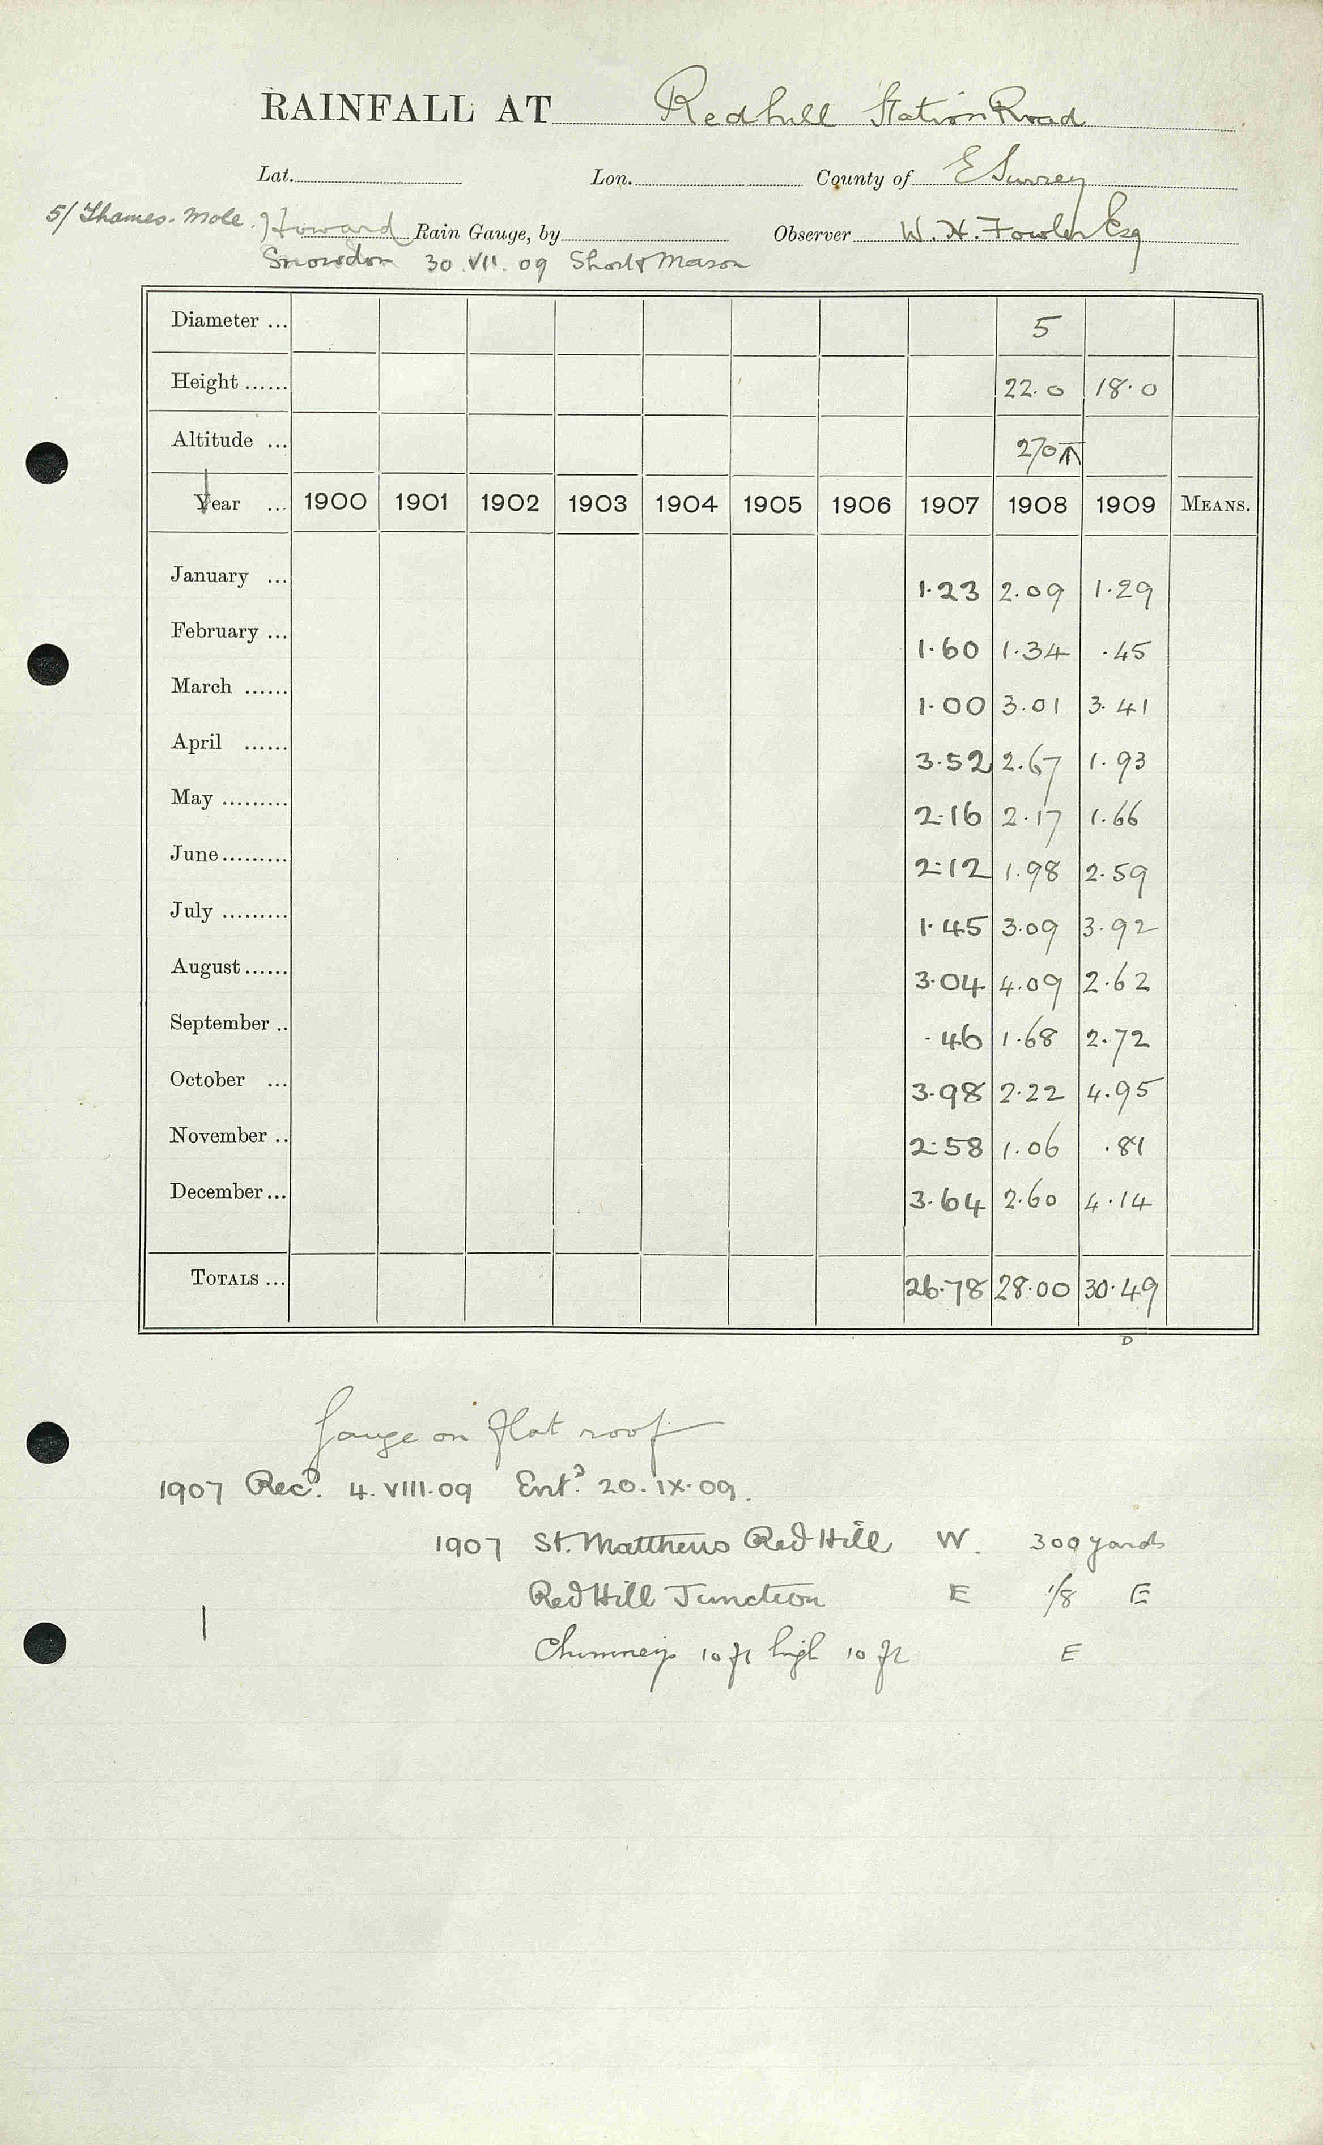 RAINFALL AT Redhill Station Road
Lat. Lon. County of E Surrey
5/ Thames-Mole. Howard Rain Gauge, by Observer W. H. Fowler Esq
Snowdon 30.VII.09 Short & Mason
Diameter ... 5
Height ...... 22.0 18.0
Altitude ... 270
Year ... 1900 1901 1902 1903 1904 1905 1906 1907 1908 1909 MEANS.
January ... 1.23 2.09 1.29
February ... 1.60 1.34 .45
March ...... 1.00 3.01 3.41
April ...... 3.52 2.67 1.93
May ......... 2.16 2.17 1.66
June ......... 2.12 1.98 2.59
July ......... 1.45 3.09 3.92
August ...... 3.04 4.09 2.62
September .. .46 1.68 2.72
October ... 3.98 2.22 4.95
November .. 2.58 1.06 .81
December ... 3.64 2.60 4.14
TOTALS ... 26.78 28.00 30.49
D
Gauge on flat roof
1907 Recd. 4.VIII.09 Entd. 20.IX.09.
1907 St. Matthews Red Hill W. 300 yards
Red Hill Junction E 1/8 E
Chimneys 10 ft high 10 ft E